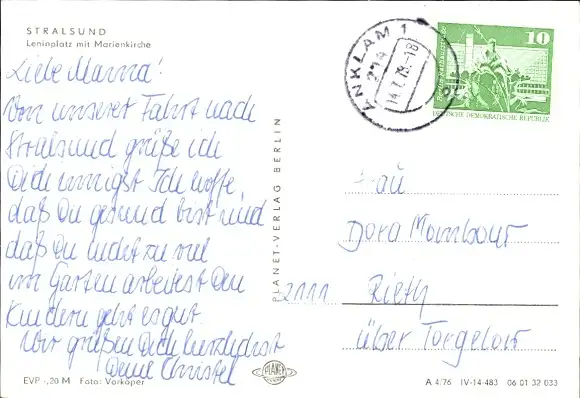 STRALSUND
Leninplatz mit Marienkirche
Liebe Mama!
Von unserer Fahrt nach
Stralsund grüße ich
Dich innigst Ich hoffe,
daß Du gesund bist und
daß Du nicht zu viel
im Garten arbeitest Den
Kindern geht es gut.
Wir grüßen Dich herzlichst
Deine Christel
EVP -,20 M Foto: Vorköper
PLANET-VERLAG BERLIN
PLANET
ANKLAM 1
214
14.7.78-18
10
DEUTSCHE DEMOKRATISCHE REPUBLIK
Frau
Dora
2111 Rieth
über Torgelow
A 4/76 IV-14-483 06 01 32 033